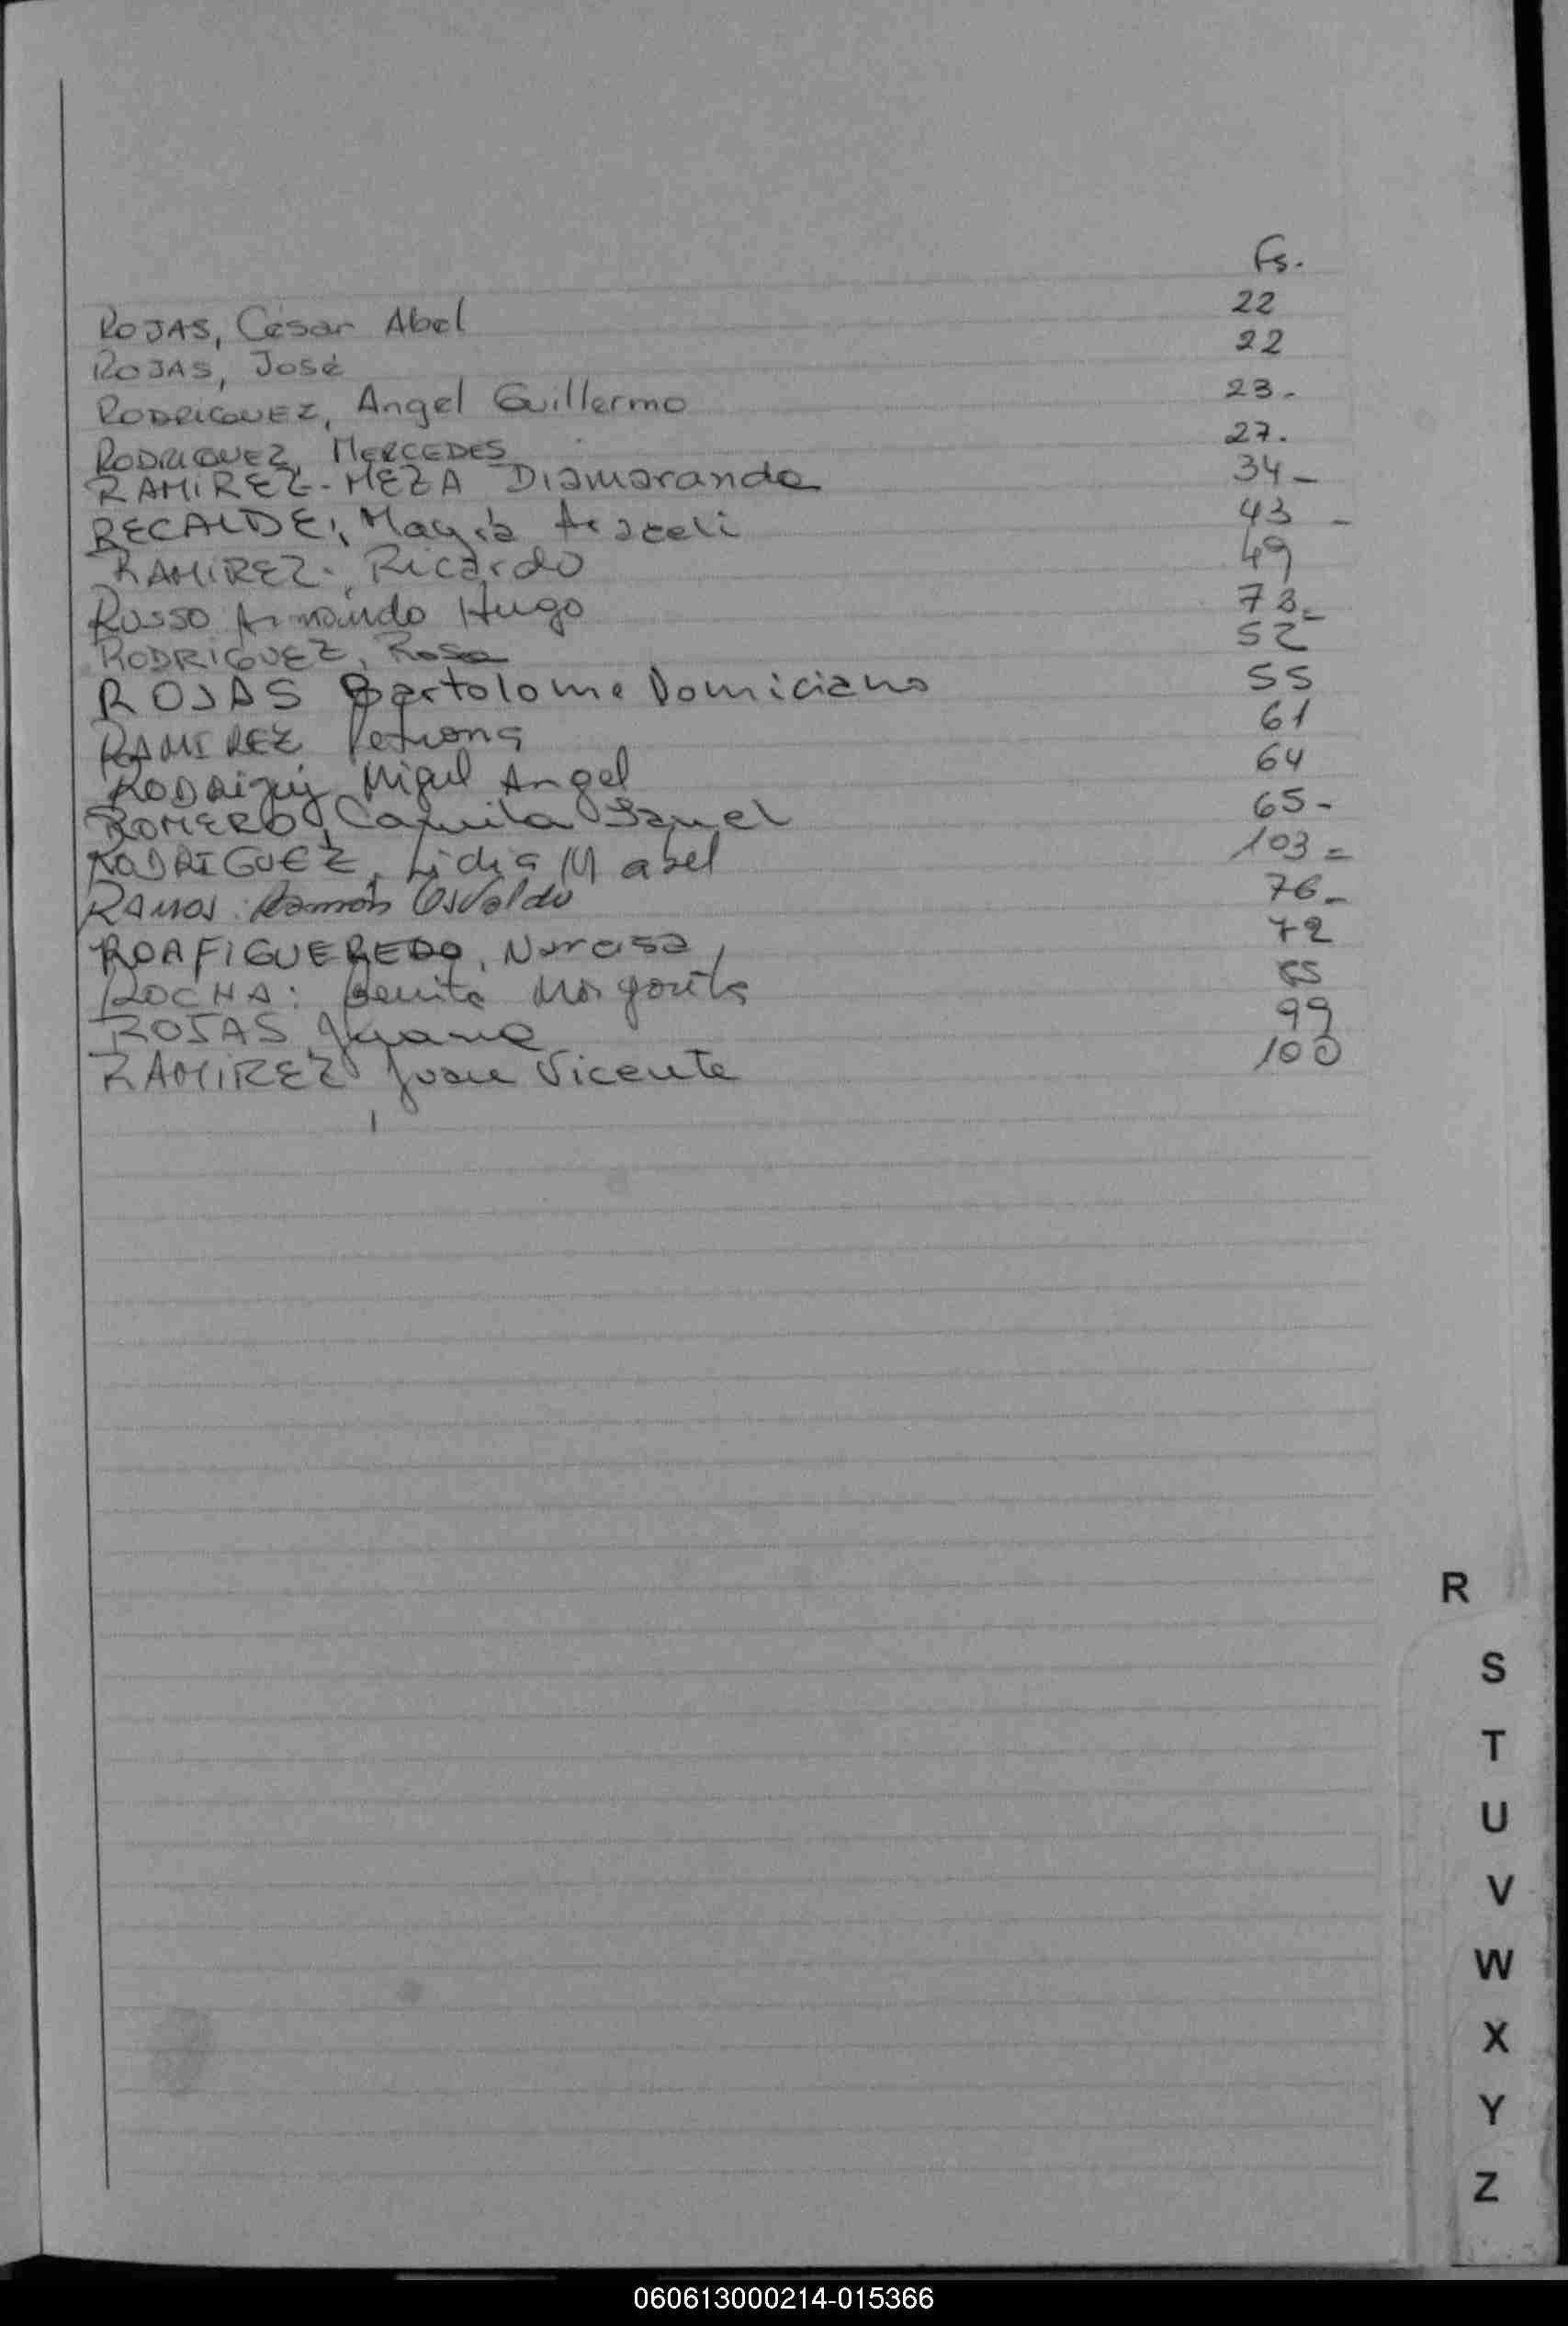 Fs.
ROJAS, César Abel 22
ROJAS, José 22
RODRIGUEZ, Angel Guillermo 23-
RODRIGUEZ, MERCEDES 27.
RAMIREZ-MEZA Diamaranda 34-
RECALDE, Araceli 43 -
RAMIREZ, Ricardo 49
Russo Armando Hugo 73-
RODRIGUEZ, Rosa 52
ROJAS Bartolome Domiciano 55
RAMIREZ Petrona 61
RODRIGUEZ Miguel Angel 64
ROMERO, Camila 65-
RODRIGUEZ, Lidia Mabel 103=
RAMOS Ramón Osvaldo 76-
ROA FIGUEREDO, Narcisa 72
ROCHA: Benita Margarita
ROJAS Juana 99
RAMIREZ Juan Vicente 100
R
S
T
U
V
W
X
Y
Z
060613000214-015366